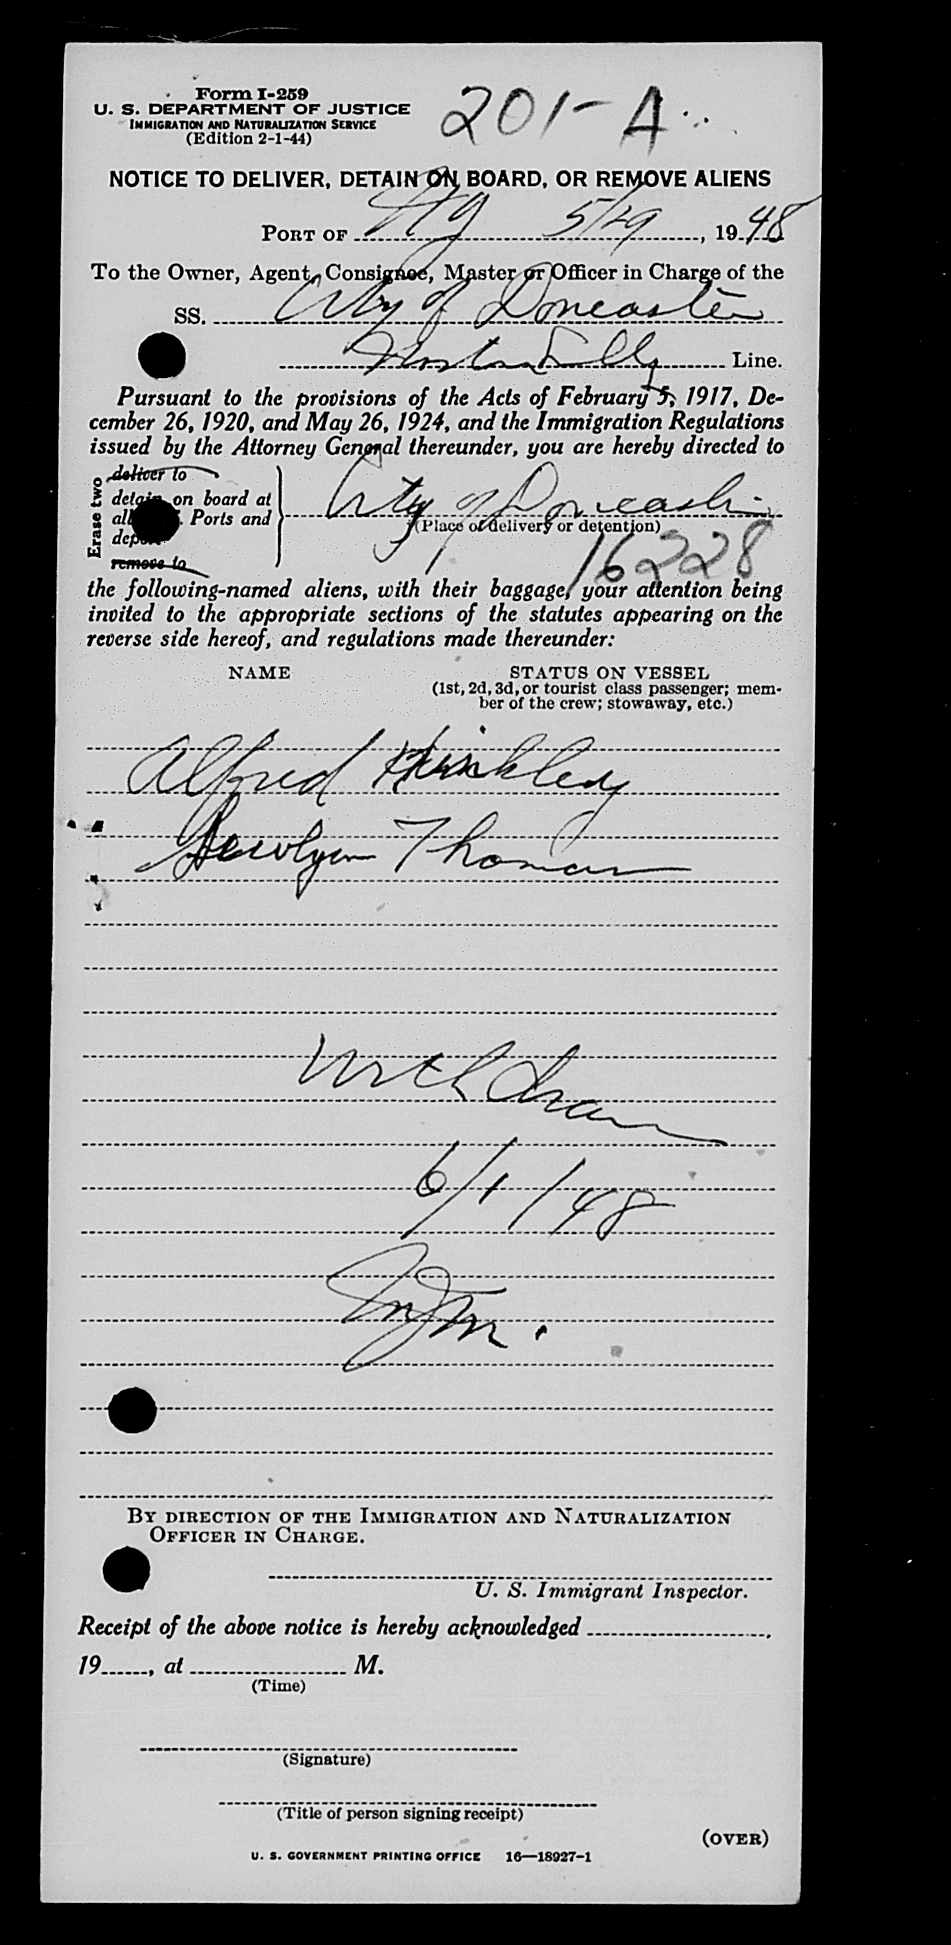 Form I-259
U. S. DEPARTMENT OF JUSTICE
IMMIGRATION AND NATURALIZATION SERVICE
(Edition 2-1-44)
201-A
NOTICE TO DELIVER, DETAIN ON BOARD, OR REMOVE ALIENS
PORT OF NY 5/29, 1948
To the Owner, Agent, Consignee, Master or Officer in Charge of the
SS. City of Doncaster
Line.
Pursuant to the provisions of the Acts of February 5, 1917, De-
cember 26, 1920, and May 26, 1924, and the Immigration Regulations
issued by the Attorney General thereunder, you are hereby directed to
Erase two
deliver to
detain on board at
all Ports and
remove to
City of Doncaster
(Place of delivery or detention)
16228
the following-named aliens, with their baggage, your attention being
invited to the appropriate sections of the statutes appearing on the
reverse side hereof, and regulations made thereunder:
NAME STATUS ON VESSEL
(1st, 2d, 3d, or tourist class passenger; mem-
ber of the crew; stowaway, etc.)
Alfred Hinkley
Thomas
6/1/48
BY DIRECTION OF THE IMMIGRATION AND NATURALIZATION
OFFICER IN CHARGE.
U. S. Immigrant Inspector.
Receipt of the above notice is hereby acknowledged
19, at M.
(Time)
(Signature)
(Title of person signing receipt)
(OVER)
U. S. GOVERNMENT PRINTING OFFICE 16—18927-1